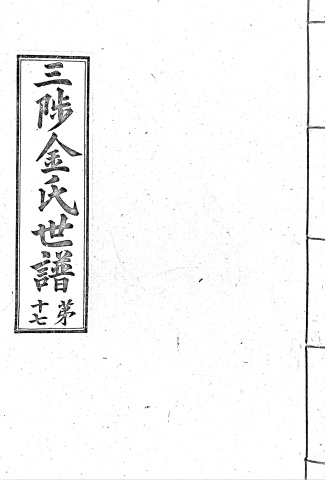 三陟金氏世譜
第十七